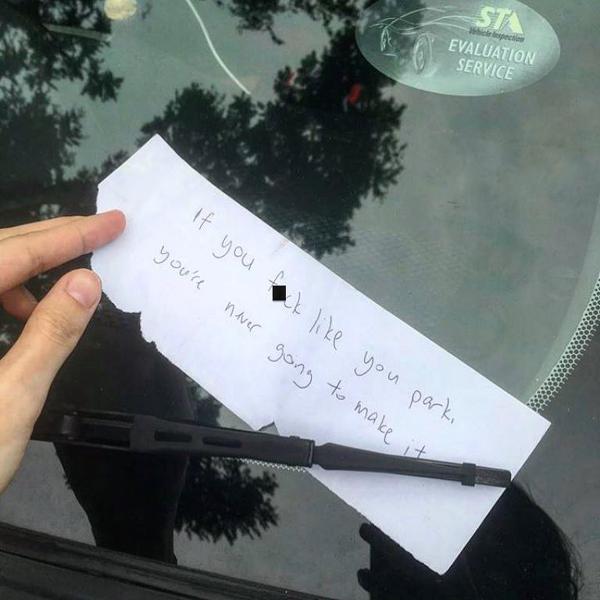 STA
Vehicle Inspection
EVALUATION
SERVICE
If you f■ck like you park,
you're never going to make it